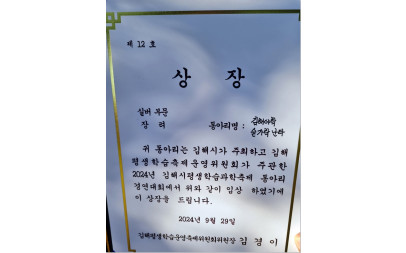 제 12 호
상 장
실버 부문
장 려 동아리명 : 김해사랑
난타
위 동아리는 김해시가 주최하고 김해
평생학습축제운영위원회가 주관한
2024년 김해시평생학습과학축제 동아리
경연대회에서 위와 같이 입상 하였기에
이 상장을 드립니다.
2024년 9월 29일
김해평생학습운영축제위원회위원장 김경이